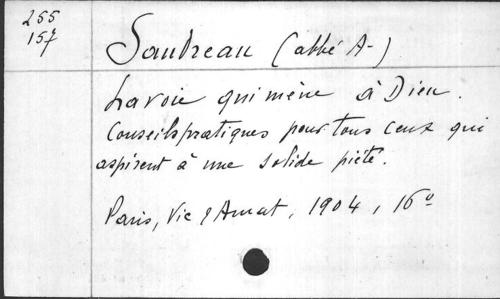 255
157
Saudreau (abbé A-)
La voie qui mène à Dieu.
Conseils pratiques pour tous ceux qui
aspirent à une solide piété.
Paris, Vic & Amat, 1904, 16º